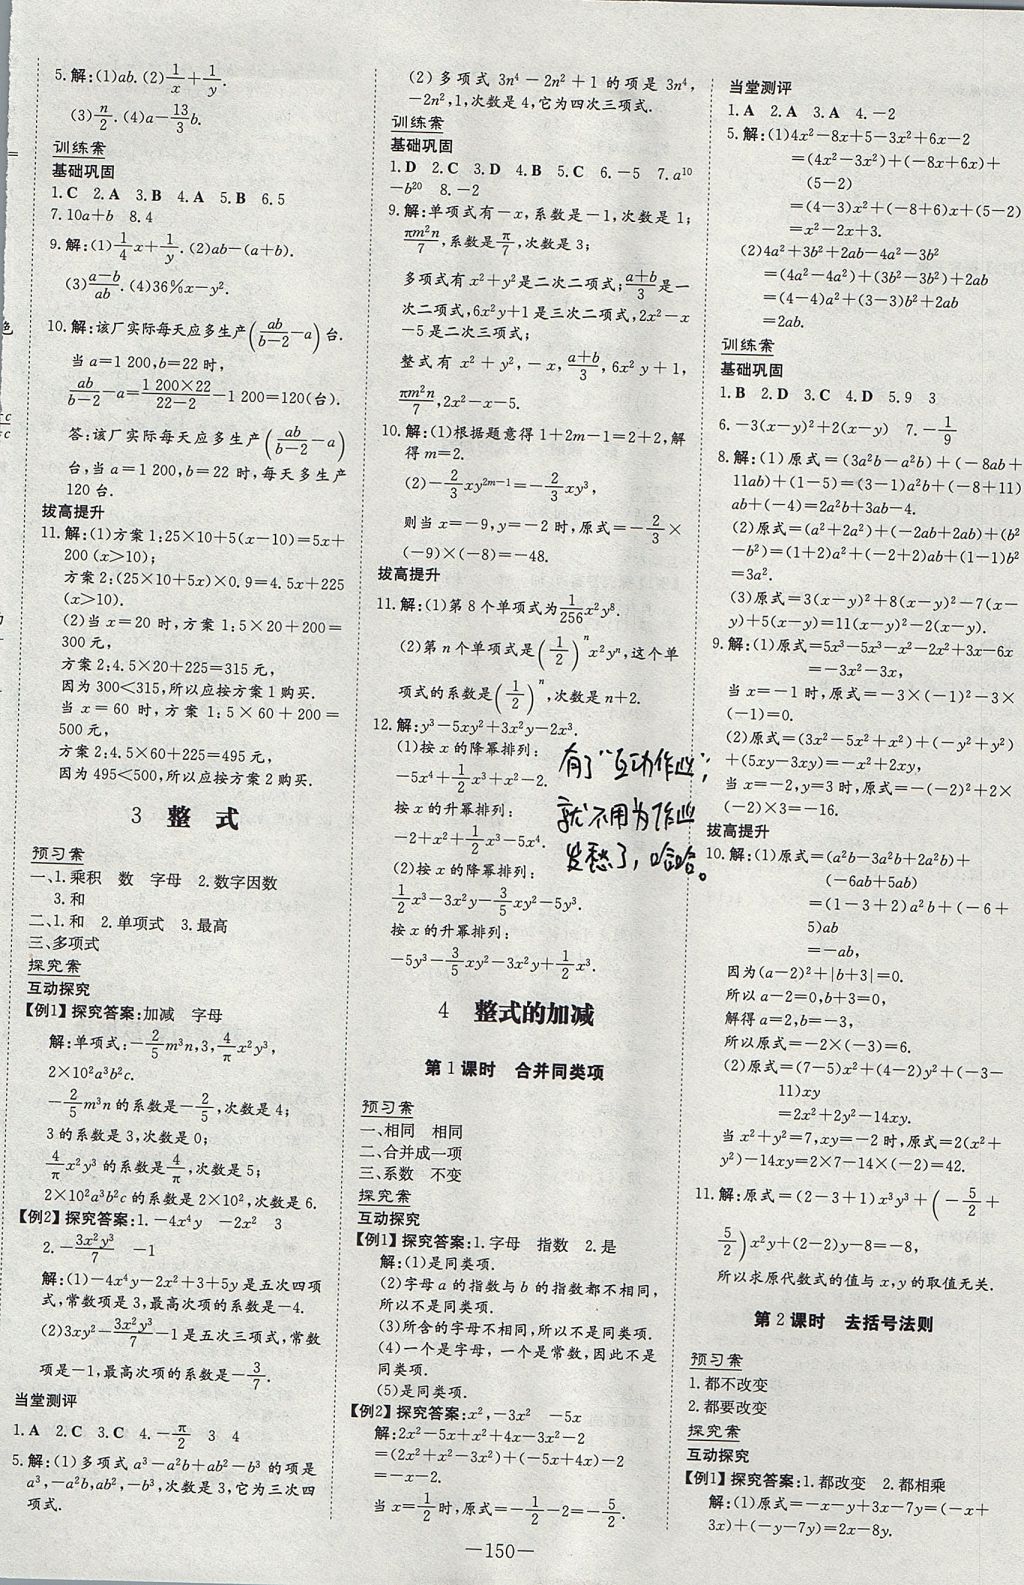 5.解:(1)ab.(2)1/x+1/y.
(3)n/2.(4)a-13/3b.
训练案
基础巩固
1.C 2.A 3.B 4.A 5.B 6.5
7.10a+b 8.4
9.解:(1)1/4x+1/y.(2)ab-(a+b).
(3)(a-b)/ab.(4)36%x-y².
10.解:该厂实际每天应多生产(ab/(b-2)-a)台.
当a=1 200,b=22时,
ab/(b-2)-a=(1 200×22)/(22-2)-1 200=120(台).
答:该厂实际每天应多生产(ab/(b-2)-a)
台,当a=1 200,b=22时,每天多生产
120台.
拔高提升
11.解:(1)方案1:25×10+5(x-10)=5x+
200(x>10);
方案2:(25×10+5x)×0.9=4.5x+225
(x>10).
(2)当x=20时,方案1:5×20+200=
300元,
方案2:4.5×20+225=315元,
因为300<315,所以应按方案1购买.
当x=60时,方案1:5×60+200=
500元,
方案2:4.5×60+225=495元,
因为495<500,所以应按方案2购买.
3 整 式
预习案
一、1.乘积 数 字母 2.数字因数
3.和
二、1.和 2.单项式 3.最高
三、多项式
探究案
互动探究
【例1】探究答案:加减 字母
解:单项式:-2/5m³n,3,4/πx²y³,
2×10²a³b²c.
-2/5m³n的系数是-2/5,次数是4;
3的系数是3,次数是0;
4/πx²y³的系数是4/π,次数是5;
2×10²a³b²c的系数是2×10²,次数是6.
【例2】探究答案:1.-4x⁴y -2x² 3
2.-3x²y³/7 -1
解:(1)-4x⁴y-2x²+3+5y是五次四项
式,常数项是3,最高次项的系数是-4.
(2)3xy²-3x²y³/7-1是五次三项式,常数
项是-1,最高次项的系数是-3/7.
当堂测评
1.A 2.C 3.C 4.-π/2 3 4
5.解:(1)多项式a³-a²b+ab²-b³的项是
a³,-a²b,ab²,-b³,次数是3,它为三次四
项式.
(2)多项式3n⁴-2n²+1的项是3n⁴,
-2n²,1,次数是4,它为四次三项式.
训练案
基础巩固
1.D 2.C 3.D 4.B 5.C 6.-5 7.a¹⁰
-b²⁰ 8.-2
9.解:单项式有-x,系数是-1,次数是1;
πm²n/7,系数是π/7,次数是3;
多项式有x²+y²是二次二项式;(a+b)/3是一
次二项式,6x²y+1是三次二项式,2x²-x
-5是二次三项式;
整式有x²+y²,-x,(a+b)/3,6x²y+1,
πm²n/7,2x²-x-5.
10.解:(1)根据题意得1+2m-1=2+2,解
得m=2.
(2)-2/3xy²ᵐ⁻¹=-2/3xy³,
则当x=-9,y=-2时,原式=-2/3×
(-9)×(-8)=-48.
拔高提升
11.解:(1)第8个单项式为1/256x²y⁸.
(2)第n个单项式是(1/2)ⁿx²yⁿ,这个单
项式的系数是(1/2)ⁿ,次数是n+2.
12.解:y³-5xy²+3x²y-2x³.
(1)按x的降幂排列:
-5x⁴+1/2x³+x²-2.
按x的升幂排列:
-2+x²+1/2x³-5x⁴.
(2)按x的降幂排列:
1/2x³-3x²y-3/5xy²-5y³.
按x的升幂排列:
-5y³-3/5xy²-3x²y+1/2x³.
有了“互动作业”,
就不用为作业
发愁了,哈哈。
4 整式的加减
第1课时 合并同类项
预习案
一、相同 相同
二、合并成一项
三、系数 不变
探究案
互动探究
【例1】探究答案:1.字母 指数 2.是
解:(1)是同类项.
(2)字母a的指数与b的指数都不相同,
所以不是同类项.
(3)所含的字母不相同,所以不是同类项.
(4)一个是字母,一个是常数,因此不是
同类项.
(5)是同类项.
【例2】探究答案:x²,-3x² -5x
解:2x²-5x+x²+4x-3x²-2
=(2x²+x²-3x²)+(-5x+4x)-2
=-x-2.
当x=1/2时,原式=-1/2-2=-5/2.
当堂测评
1.A 2.A 3.A 4.-2
5.解:(1)4x²-8x+5-3x²+6x-2
=(4x²-3x²)+(-8x+6x)+
(5-2)
=(4-3)x²+(-8+6)x+(5-2)
=x²-2x+3.
(2)4a²+3b²+2ab-4a²-3b²
=(4a²-4a²)+(3b²-3b²)+2ab
=(4-4)a²+(3-3)b²+2ab
=2ab.
训练案
基础巩固
1.B 2.D 3.C 4.D 5.9 3
6.-3(x-y)²+2(x-y) 7.-1/9
8.解:(1)原式=(3a²b-a²b)+(-8ab+
11ab)+(1-5)=(3-1)a²b+(-8+11)
ab+(-4)=2a²b+3ab-4.
(2)原式=(a²+2a²)+(-2ab+2ab)+(b²
-b²)=(1+2)a²+(-2+2)ab+(1-1)b²
=3a².
(3)原式=3(x-y)²+8(x-y)²-7(x-
y)+5(x-y)=11(x-y)²-2(x-y).
9.解:(1)原式=5x³-5x³-x²-2x²+3x-6x
=-3x²-3x,
当x=-1时,原式=-3×(-1)²-3×
(-1)=0.
(2)原式=(3x²-5x²+x²)+(-y²+y²)
+(5xy-3xy)=-x²+2xy,
当x=-2,y=3时,原式=-(-2)²+2×
(-2)×3=-16.
拔高提升
10.解:(1)原式=(a²b-3a²b+2a²b)+
(-6ab+5ab)
=(1-3+2)a²b+(-6+
5)ab
=-ab,
因为(a-2)²+|b+3|=0.
所以a-2=0,b+3=0,
解得a=2,b=-3,
所以原式=-2×(-3)=6.
(2)原式=(7-5)x²+(4-2)y²+(-3-
11)xy
=2x²+2y²-14xy.
当x²+y²=7,xy=-2时,原式=2(x²+
y²)-14xy=2×7-14×(-2)=42.
11.解:原式=(2-3+1)x³y³+(-5/2+
5/2)x²y+(2-2)y-8=-8,
所以求原代数式的值与x,y的取值无关.
第2课时 去括号法则
预习案
1.都不改变
2.都要改变
探究案
互动探究
【例1】探究答案:1.都改变 2.都相乘
解:(1)原式=-x-y+3x-7y=(-x+
3x)+(-y-7y)=2x-8y.
-150-